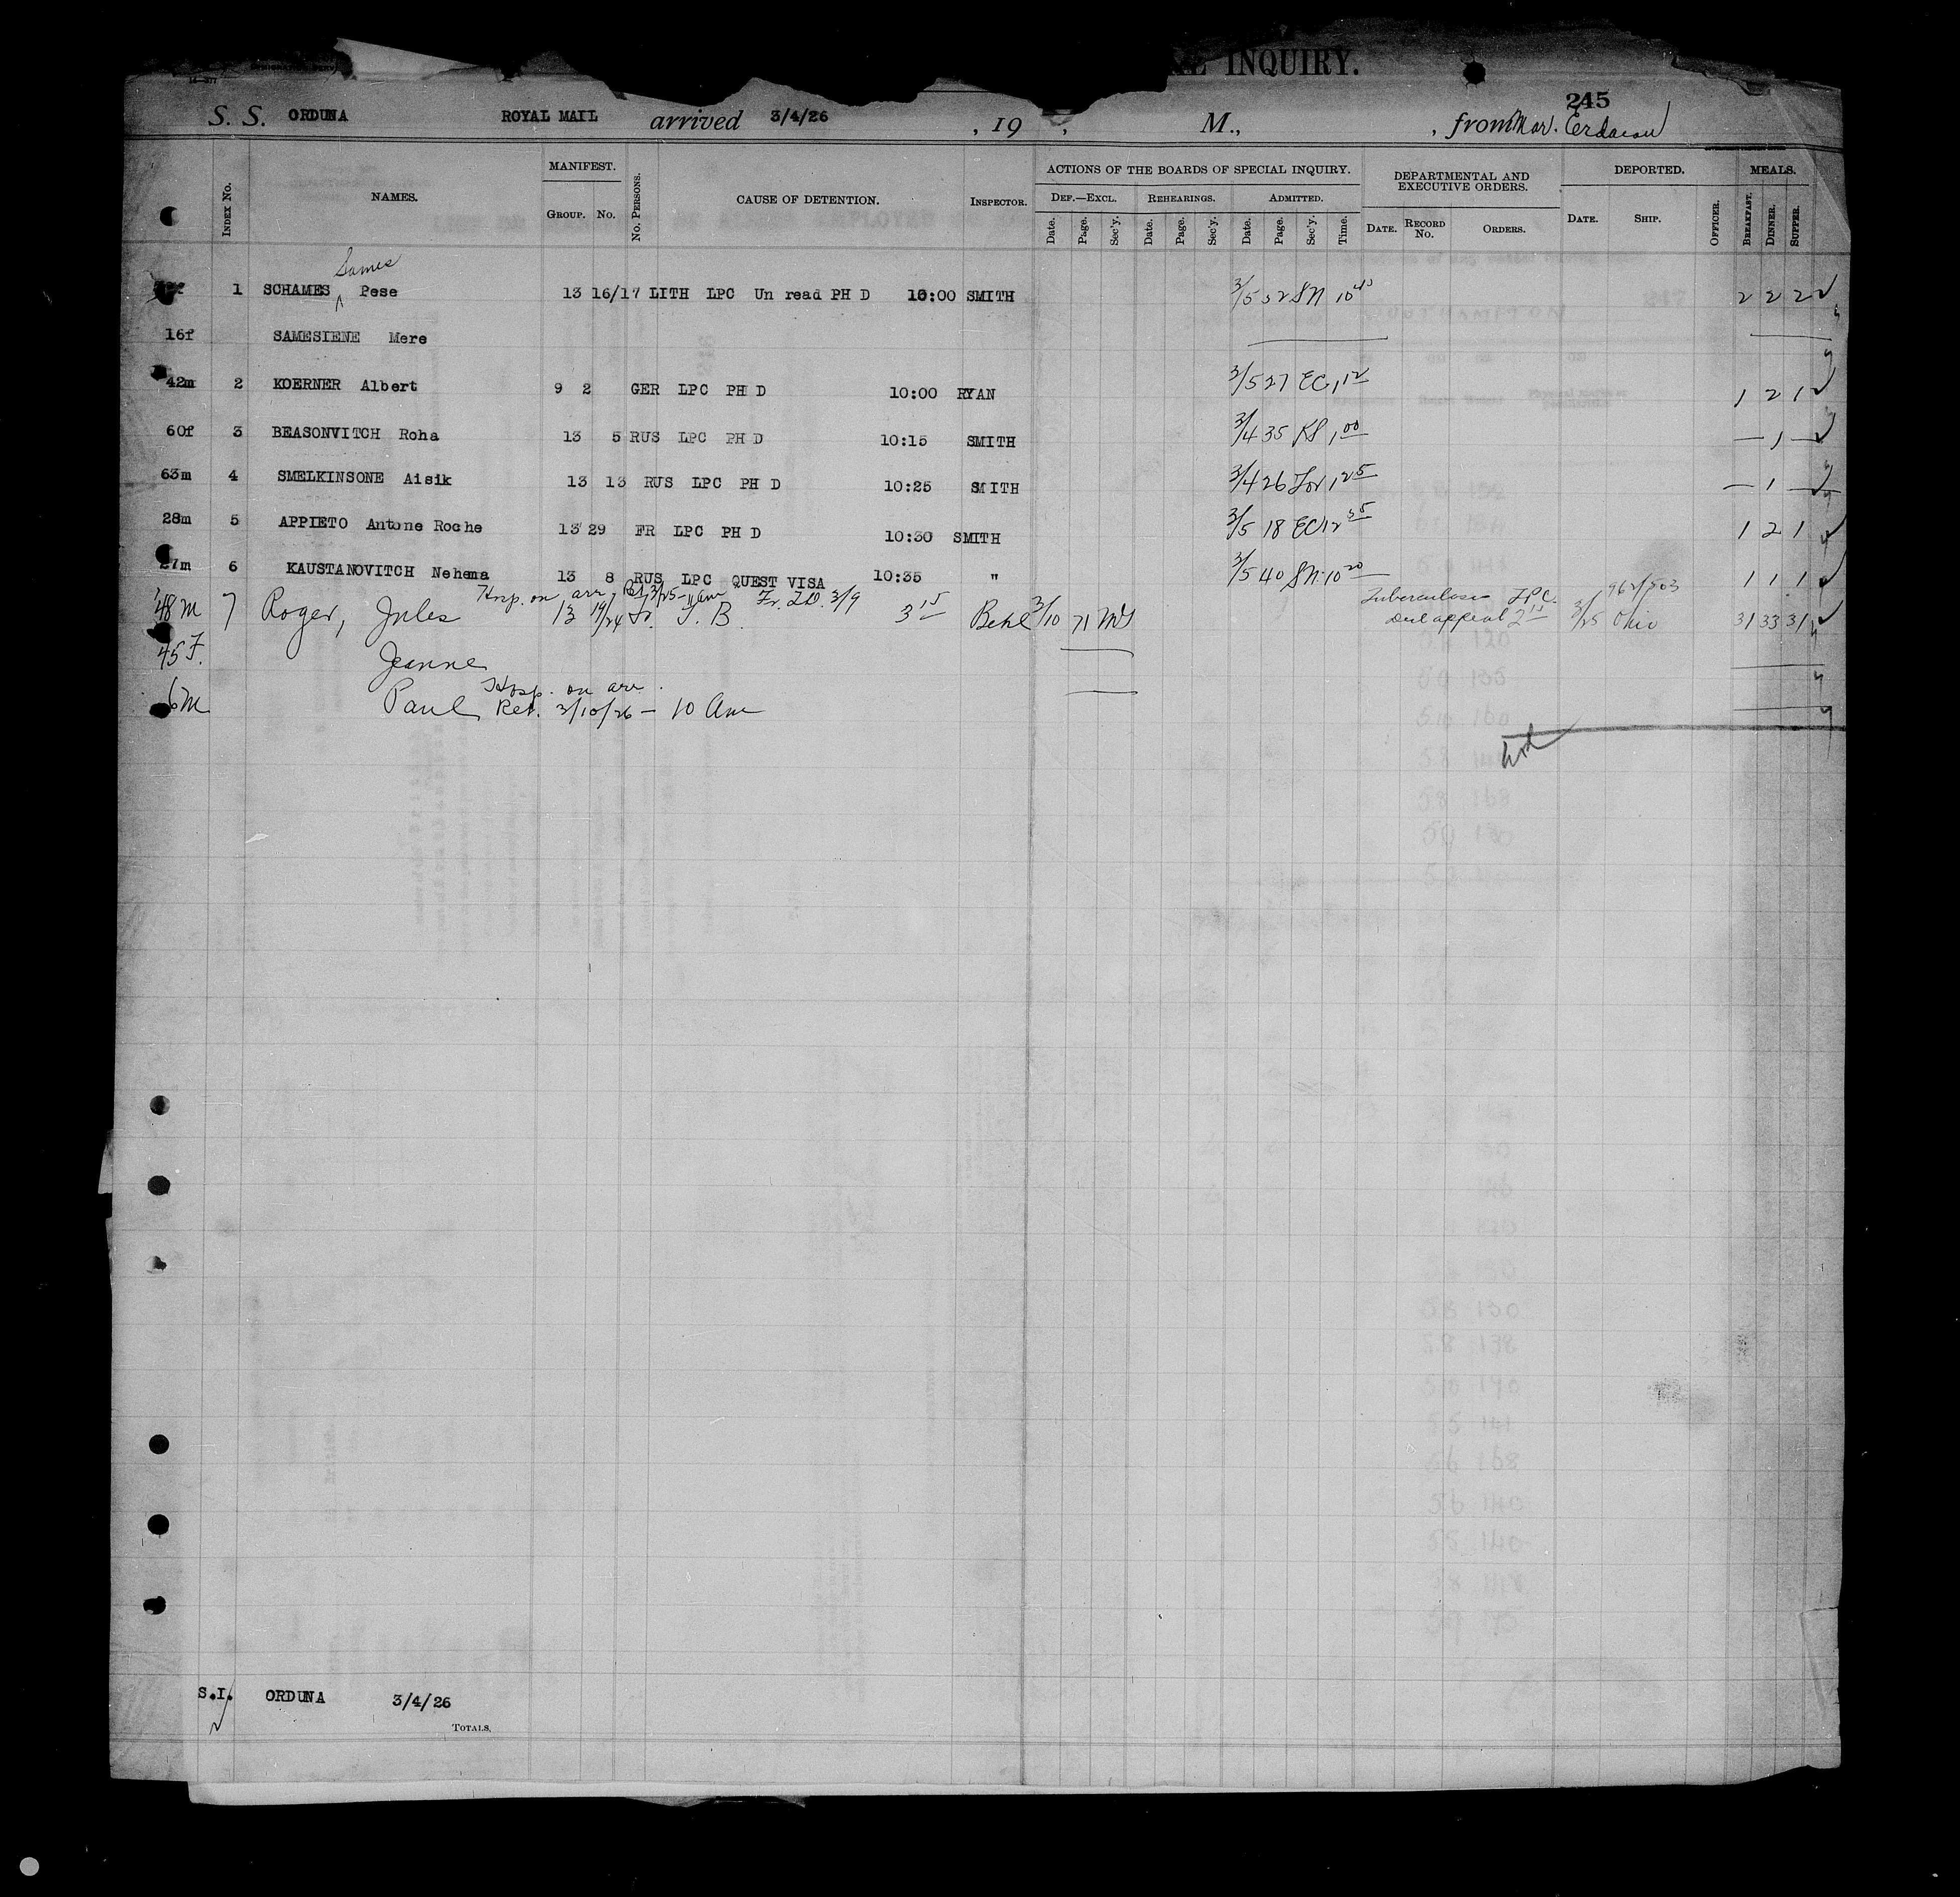 INQUIRY.
245
S. S. ORDUNA ROYAL MAIL arrived 3/4/26 , 19 , M., , from
INDEX No. NAMES. MANIFEST. GROUP. No. No. PERSONS. CAUSE OF DETENTION. INSPECTOR. ACTIONS OF THE BOARDS OF SPECIAL INQUIRY. DEF.—EXCL. Date. Page. Sec'y. REHEARINGS. Date. Page. Sec'y. ADMITTED. Date. Page. Sec'y. Time. DEPARTMENTAL AND EXECUTIVE ORDERS. DATE. RECORD No. ORDERS. DEPORTED. DATE. SHIP. OFFICER. MEALS. BREAKFAST. DINNER. SUPPER.
Sames
1 SCHAMES Pese 13 16/17 LITH LPC Un read PH D 10:00 SMITH 3/5 52 SN 10 40 2 2 2
16f SAMESIENE Mere
42m 2 KOERNER Albert 9 2 GER LPC PH D 10:00 RYAN 3/5 27 EC 1 12 1 2 1
60f 3 BEASONVITCH Roha 13 5 RUS LPC PH D 10:15 SMITH 3/4 35 RS 1 00 — 1 —
63m 4 SMELKINSONE Aisik 13 13 RUS LPC PH D 10:25 SMITH 3/4 26 1 25 — 1 —
28m 5 APPIETO Antone Roche 13 29 FR LPC PH D 10:30 SMITH 3/5 18 EC 12 35 1 2 1
27m 6 KAUSTANOVITCH Nehema 13 8 RUS LPC QUEST VISA 10:35 " 3/5 40 SN 10 20 1 1 1
Hosp. on arr. 3/25 3/9 Tuberculosis LPC.
48 m 7 Roger, Jules 13 19/24 T. B. 3 15 3/10 71 appeal 2 15 3/25 Ohio 31 33 31
45 F. Jeanne
Hosp. on arr.
6m Paul Ret. 3/10/26 - 10 Am
S.I. ORDUNA 3/4/26
TOTALS.